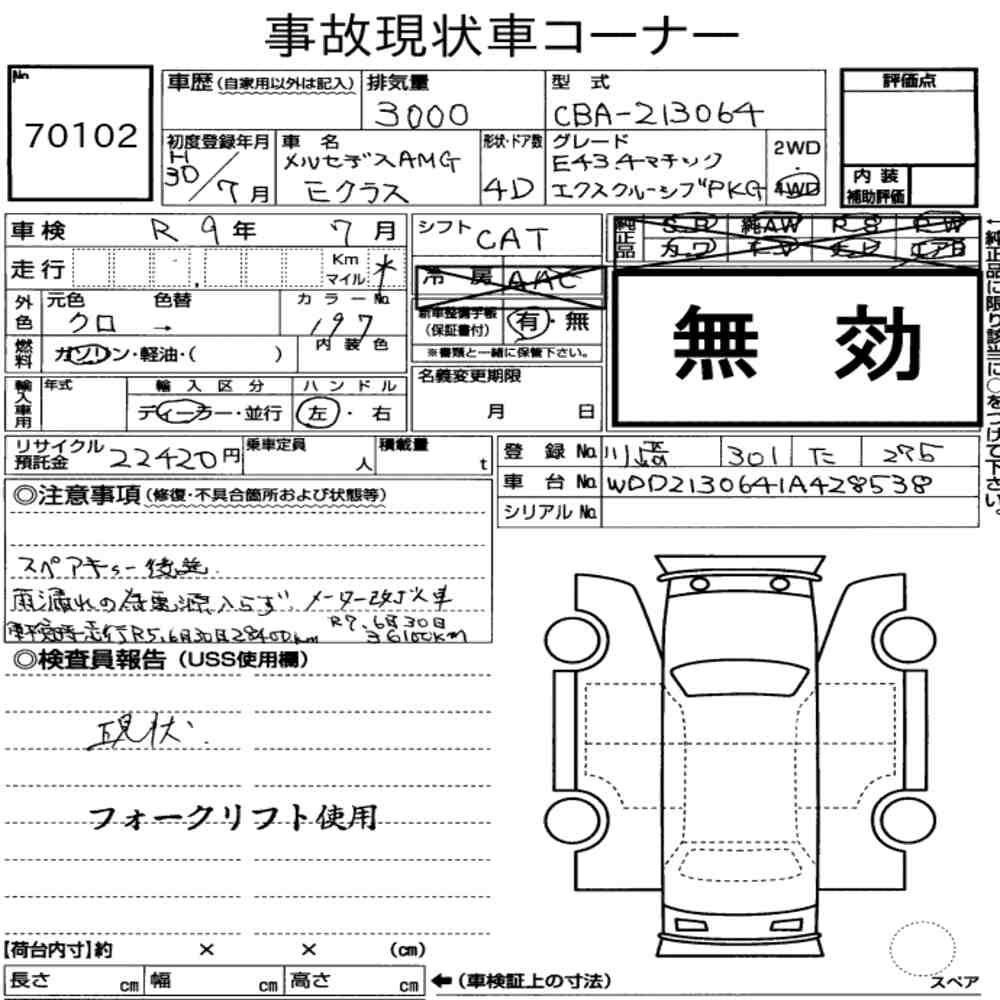 事故現状車コーナー
No.
70102
車歴 (自家用以外は記入)
排気量
3000
型 式
CBA-213064
評価点
初度登録年月
H30/7月
車 名
メルセデスAMG
Eクラス
形状・ドア数
4D
グレード
E43.4マチック
エクスクルーシブPKG
2WD
4WD
内 装
補助評価
車検 R 9年 7月
走行
Km
マイル
*
シフト CAT
冷 房 AAC
純正品
S.R 純AW P.S P.W
カワ T.V ナビ エアB
外色
元色 色替
クロ →
カラーNo.
197
内装色
新車整備手帳
(保証書付)
有・無
※書類と一緒に保管下さい。
無 効
燃料
ガソリン・軽油・( )
輸入車用
年式
輸入区分
ディーラー・並行
ハンドル
左・右
名義変更期限
月 日
←純正品に限り該当に○をつけて下さい。
リサイクル
預託金
22420円
乗車定員
人
積載量
t
登 録 No. 川崎 301 た 275
車 台 No. WDD2130641A428538
シリアル No.
◎注意事項 (修復・不具合箇所および状態等)
スペアキー後送
雨漏れの為電源入らず、メーター改ざん車
走行R5.6月30日28400km
R7.6月30日
36100KM
◎検査員報告 (USS使用欄)
現状.
フォークリフト使用
【荷台内寸】約 × × (cm)
長さ cm 幅 cm 高さ cm
← (車検証上の寸法)
スペア